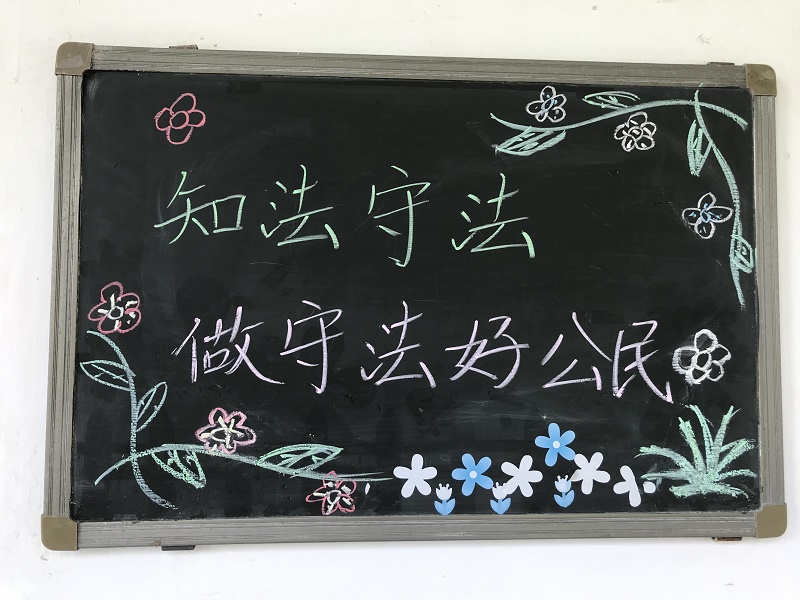 知法守法
做守法好公民